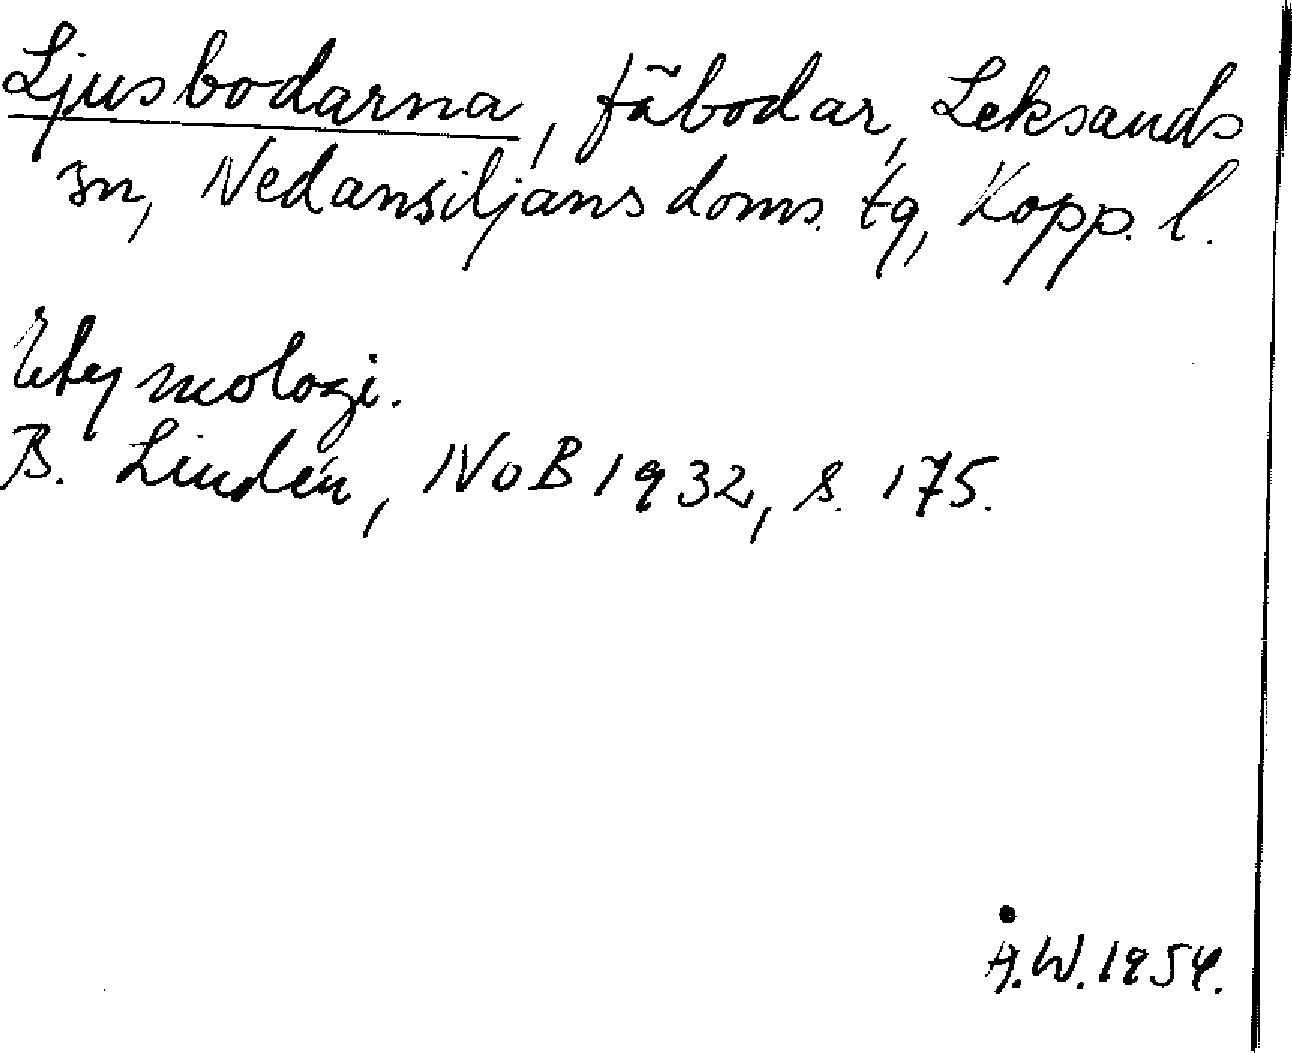 Ljusbodarna, fäbodar, Leksands
sn, Nedansiljans doms. tg, Kopp. l.
Etymologi.
B. Lindén, NoB 1932, s. 175.
Å.W. 1954.